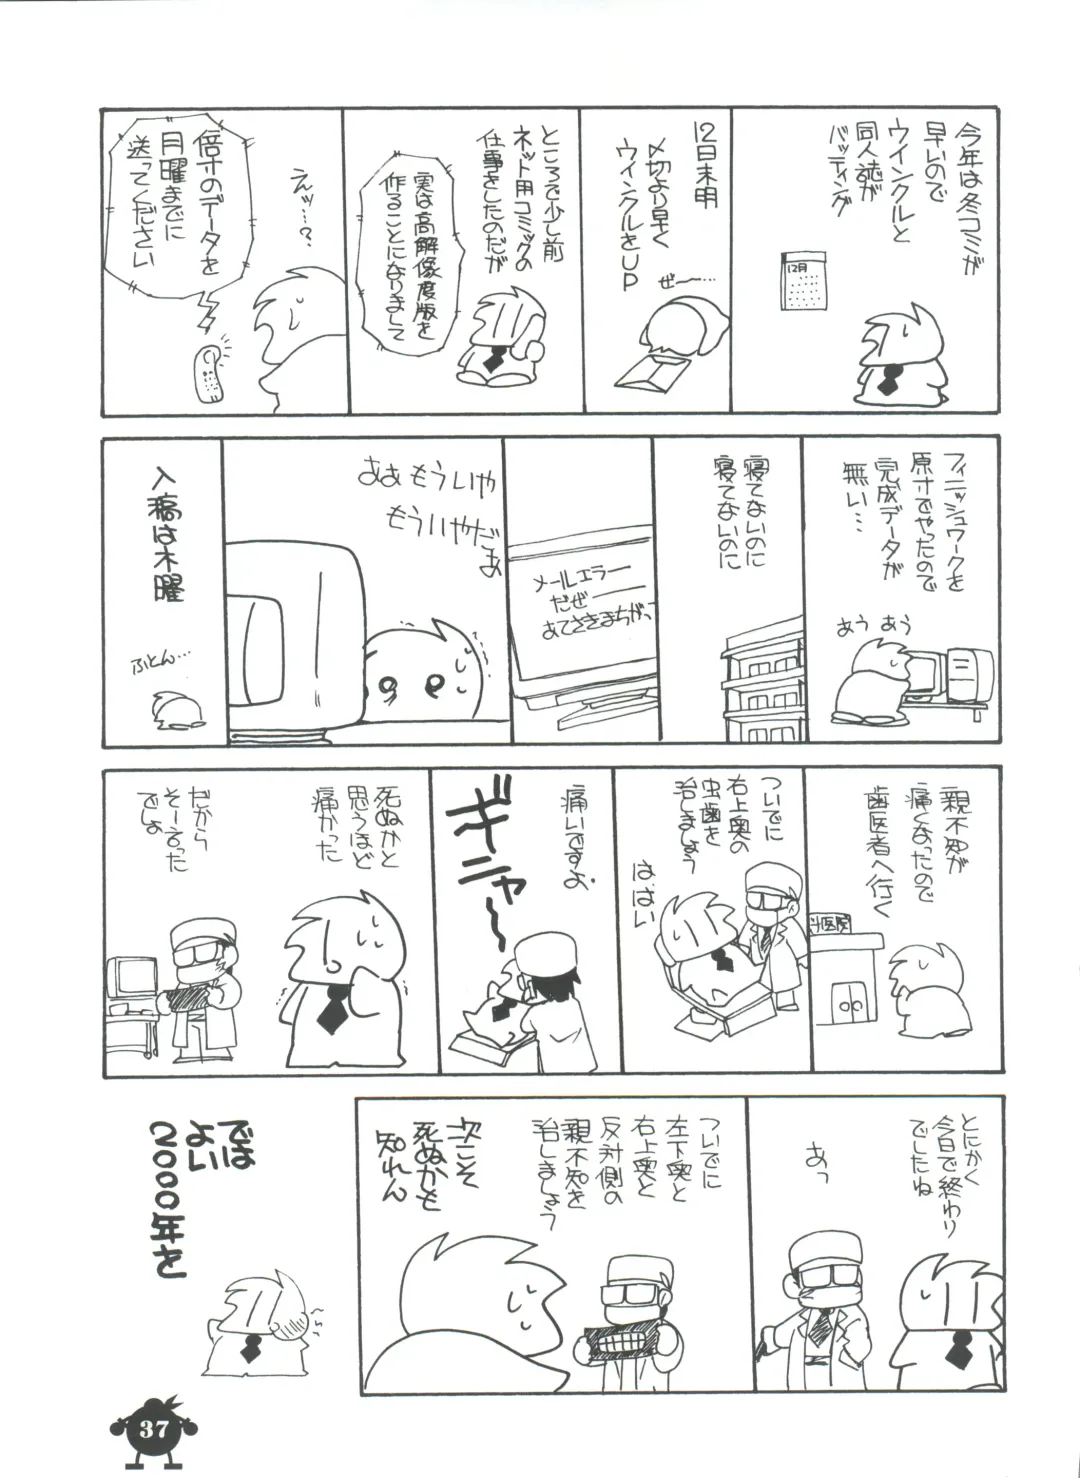 今年は冬コミが
早いので
ウインクルと
同人誌が
バッティング
12月
12日未明
〆切より早く
ウィンクルをUP
ぜー…
ところで少し前
ネット用コミックの
仕事をしたのだが
実は高解像度版を
作ることになりまして
えッ…?
倍寸のデータを
月曜までに
送ってください
フィニッシュワークを
原寸でやったので
完成データが
無い…
あう あう
寝てないのに
寝てないのに
メールエラー
だぜ――
あてさきまちが、
ああ もういや
もういやだ
ぁ
入稿は木曜
ふとん…
親不知が
痛くなったので
歯医者へ行く
歯医院
ついでに
右上奥の
虫歯を
治しましょう
は、はい
痛いですよ.
ギニャ〜
死ぬかと
思うほど
痛かった
だから
そー言った
でしょ
とにかく
今日で終わり
でしたね
あっ
ついでに
左下奥と
右上奥と
反対側の
親不知を
治しましょう
次こそ
死ぬかも
知れん
では
よい
2000年を
37